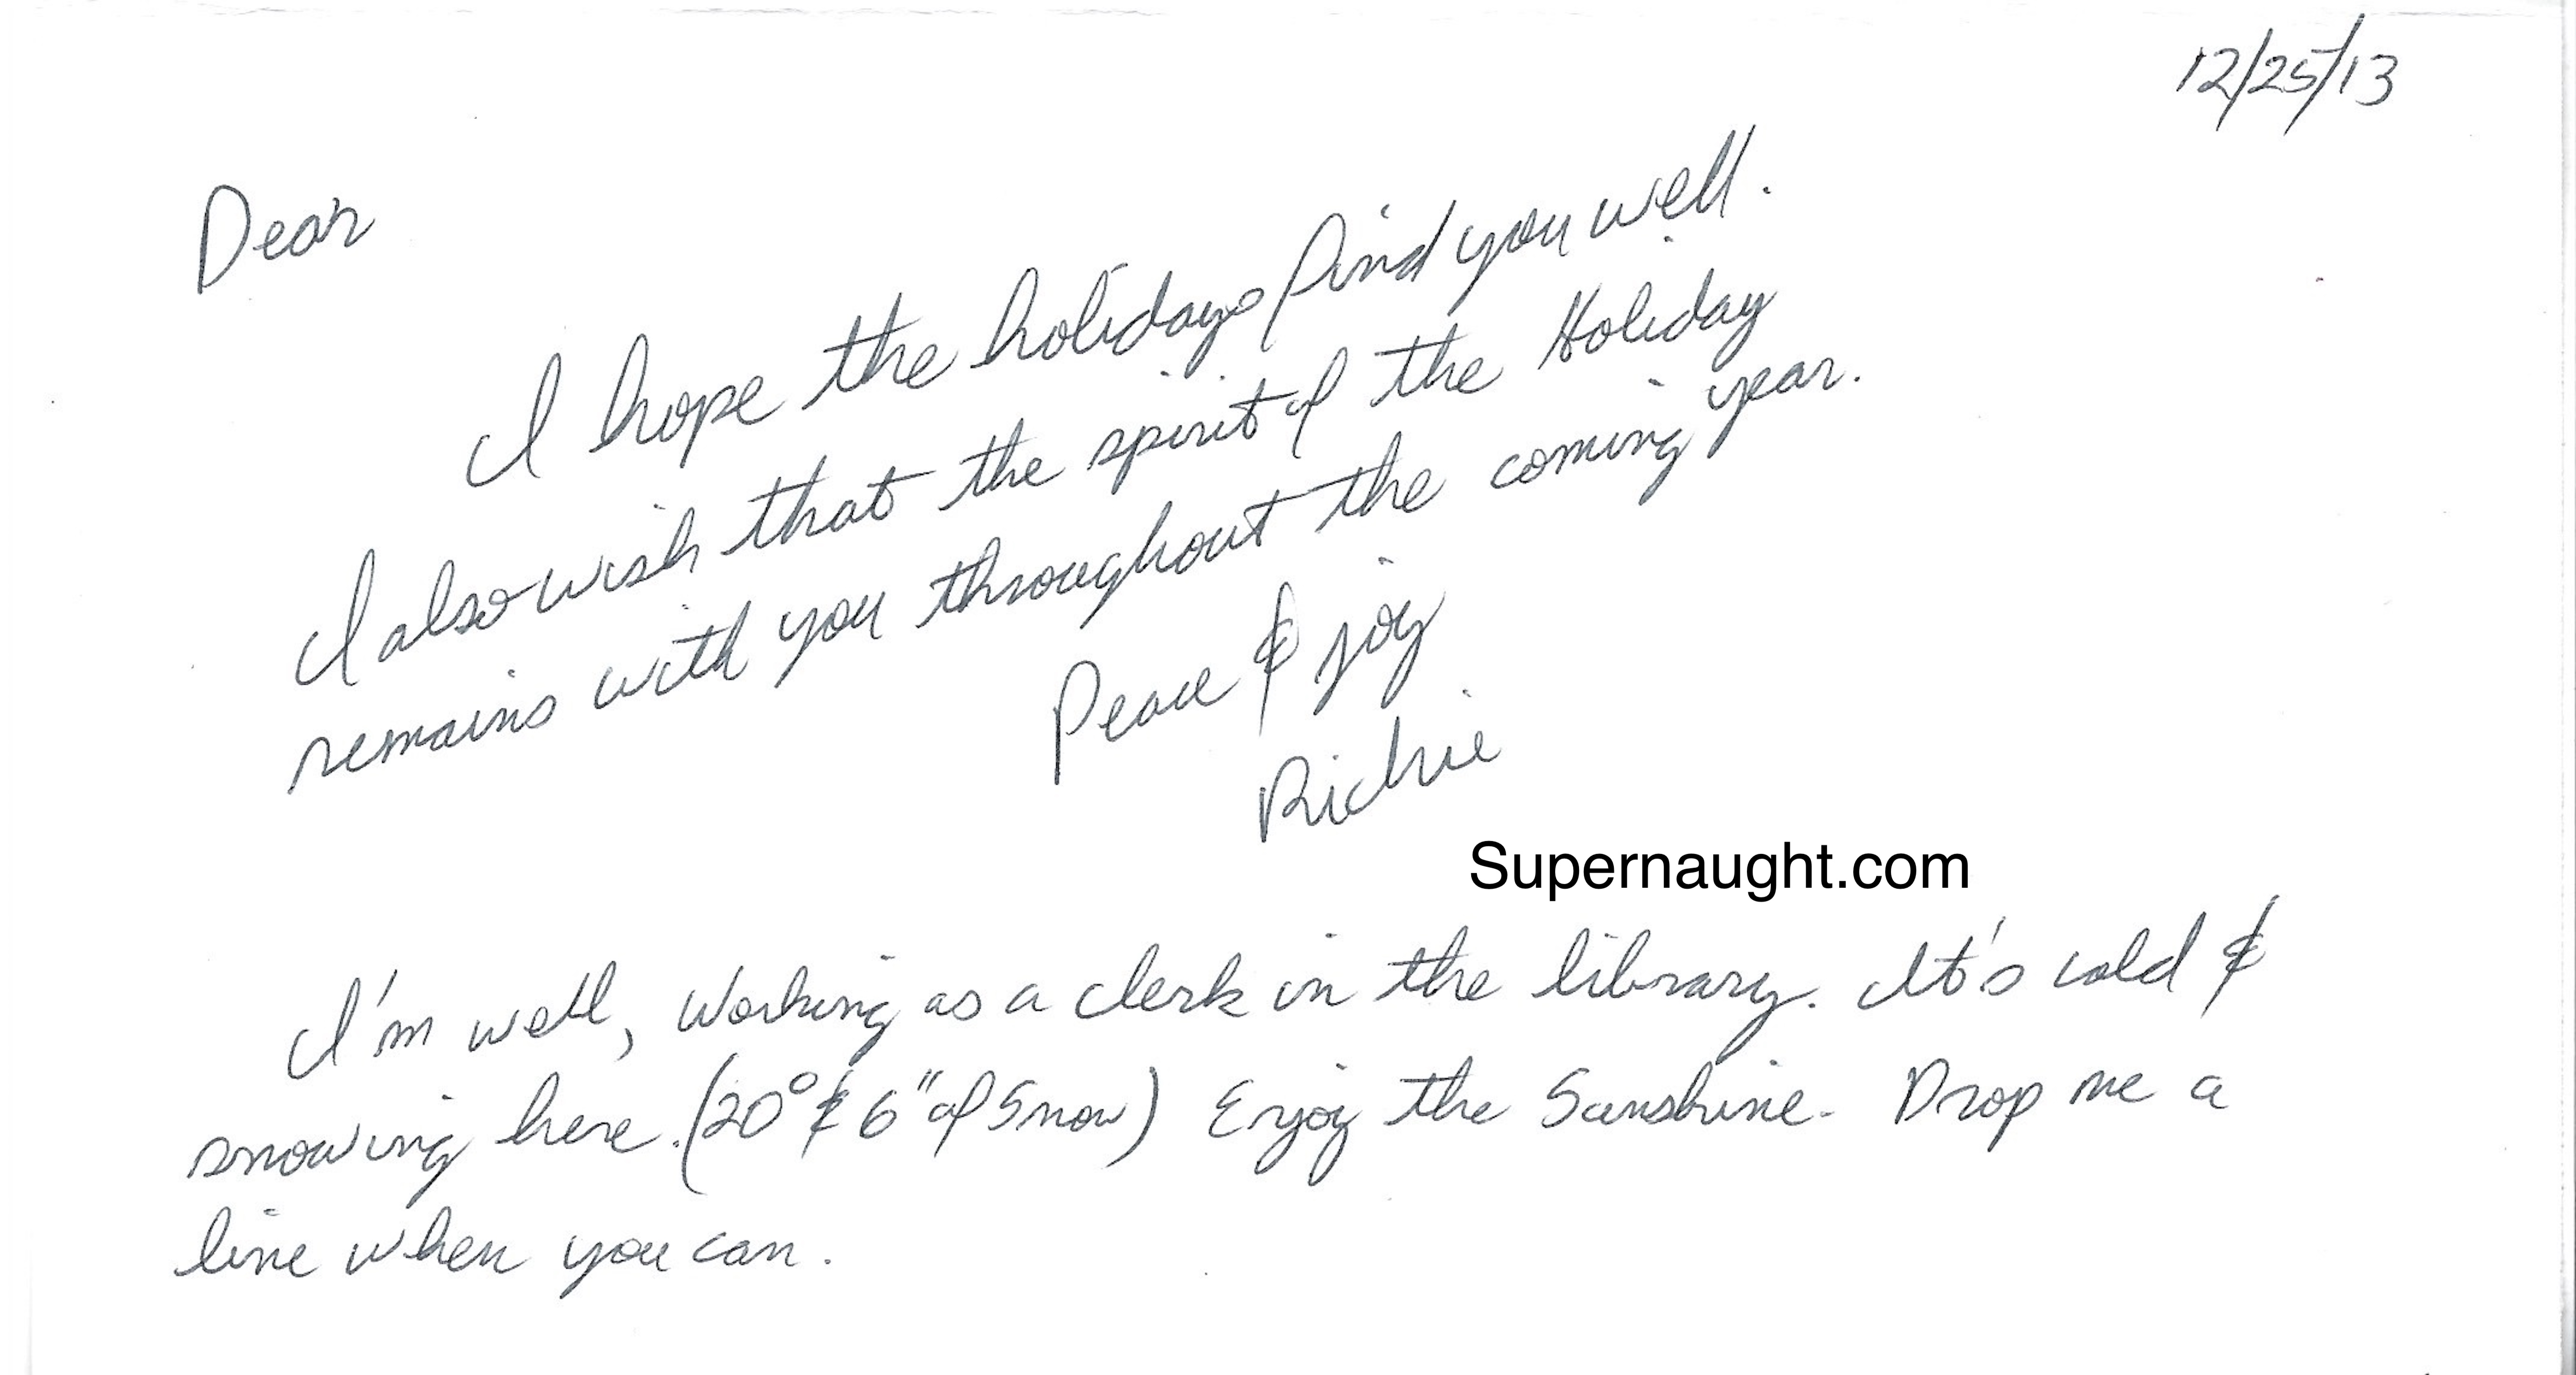 12/25/13
Dear
I hope the holidays find you well.
I also wish that the spirit of the Holiday
remains with you throughout the coming year.
Peace & joy
Richie
Supernaught.com
I'm well, Working as a clerk in the library. It's cold &
snowing here. (20° & 6" of Snow) Enjoy the Sunshine. Drop me a
line when you can.